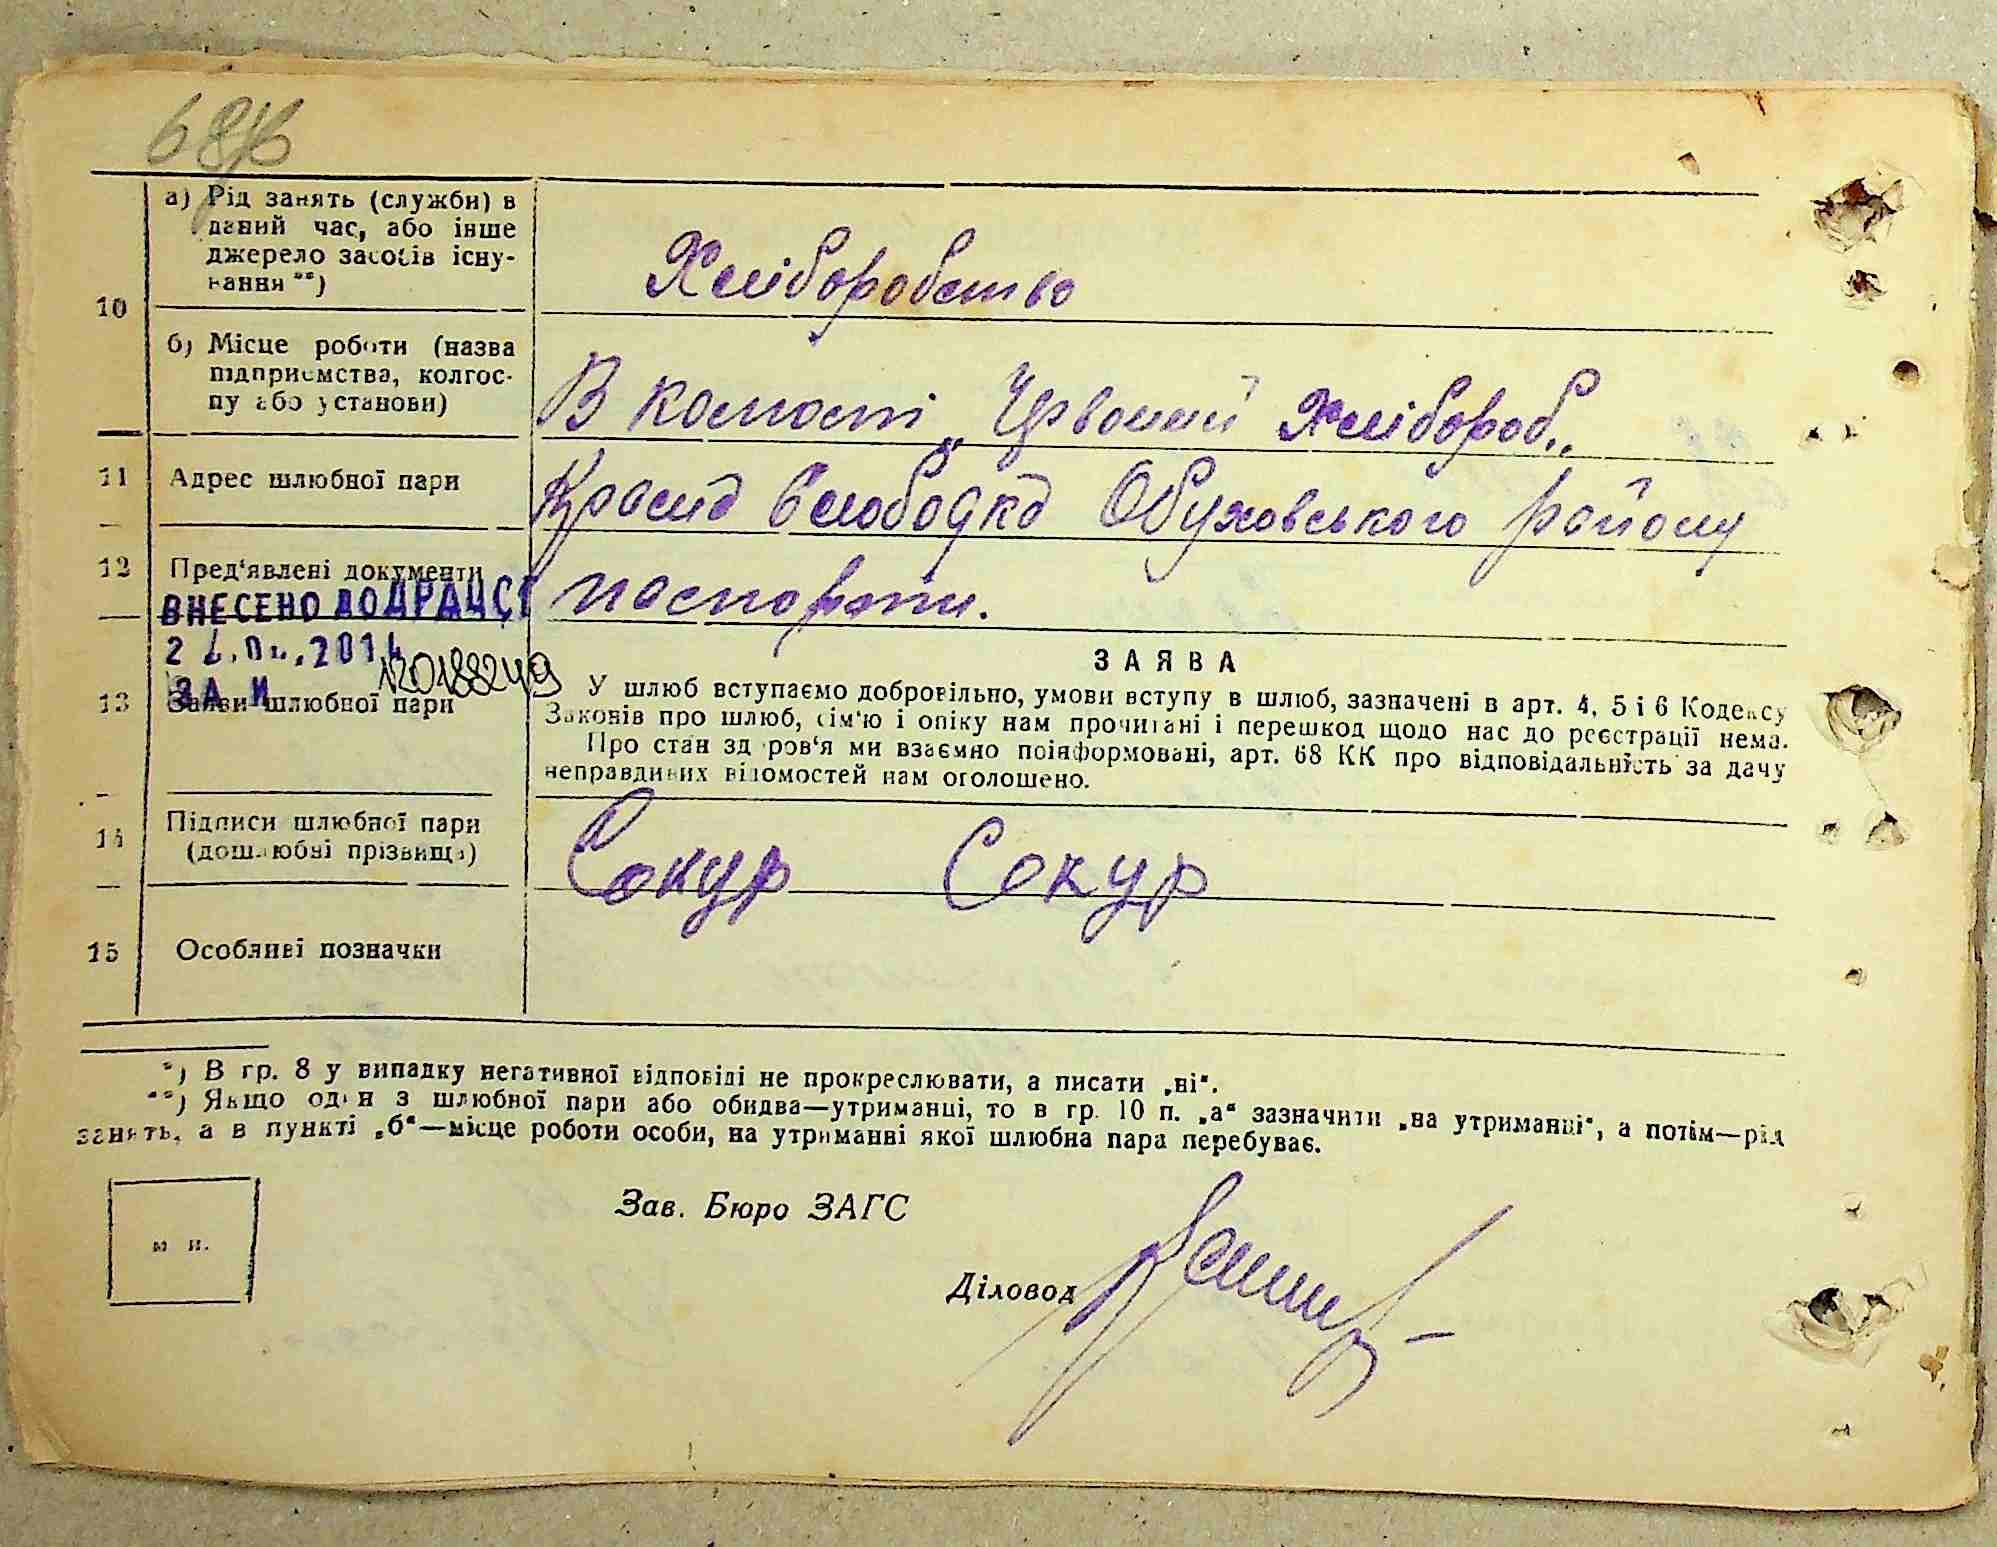 68зв
10
а) Рід занять (служби) в
даний час, або інше
джерело засобів існу-
вання **)
Хліборобство
б) Місце роботи (назва
підприємства, колгос-
пу або установи)
В колгоспі „Червоний Хлібороб„
11 Адрес шлюбної пари
Красна Слободка Обуховського району
12 Пред'явлені документи
паспорти.
ВНЕСЕНО ДО ДРАЦС
2014
ЗА N 120188249
13 Заяви шлюбної пари
ЗАЯВА
У шлюб вступаємо добровільно, умови вступу в шлюб, зазначені в арт. 4, 5 і 6 Кодексу
Законів про шлюб, сім'ю і опіку нам прочитані і перешкод щодо нас до реєстрації нема.
Про стан здоров'я ми взаємно поінформовані, арт. 68 КК про відповідальність за дачу
неправдивих відомостей нам оголошено.
14 Підписи шлюбної пари
(дошлюбні прізвища)
Сокур Сокур
15 Особливі позначки
*) В гр. 8 у випадку негативної відповіді не прокреслювати, а писати „ні“.
**) Якщо один з шлюбної пари або обидва—утриманці, то в гр. 10 п. „а“ зазначити „на утриманні“, а потім—рід
занять, а в пункті „б“—місце роботи особи, на утриманні якої шлюбна пара перебуває.
м п.
Зав. Бюро ЗАГС
Діловод